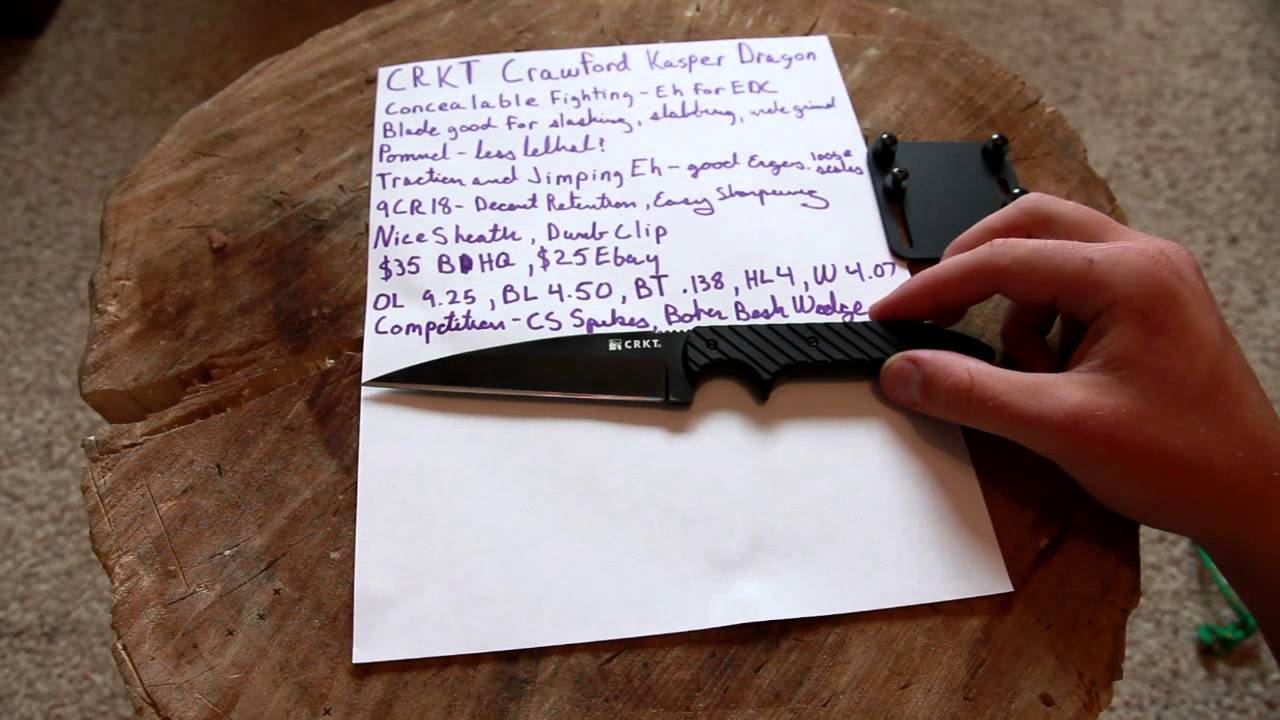 CRKT Crawford Kasper Dragon
Concealable Fighting - Eh for EDC
Blade good for slashing, stabbing, wide grind
Pommel - less lethal?
Traction and Jimping Eh - good Ergos. loose scales
9CR18 - Decent Retention, Easy Sharpening
Nice Sheath, Dumb Clip
$35 BHQ, $25 Ebay
OL 9.25, BL 4.50, BT .138, HL 4, W 4.07
Competition - CS Spikes, Boker Besh Wedge
CRKT